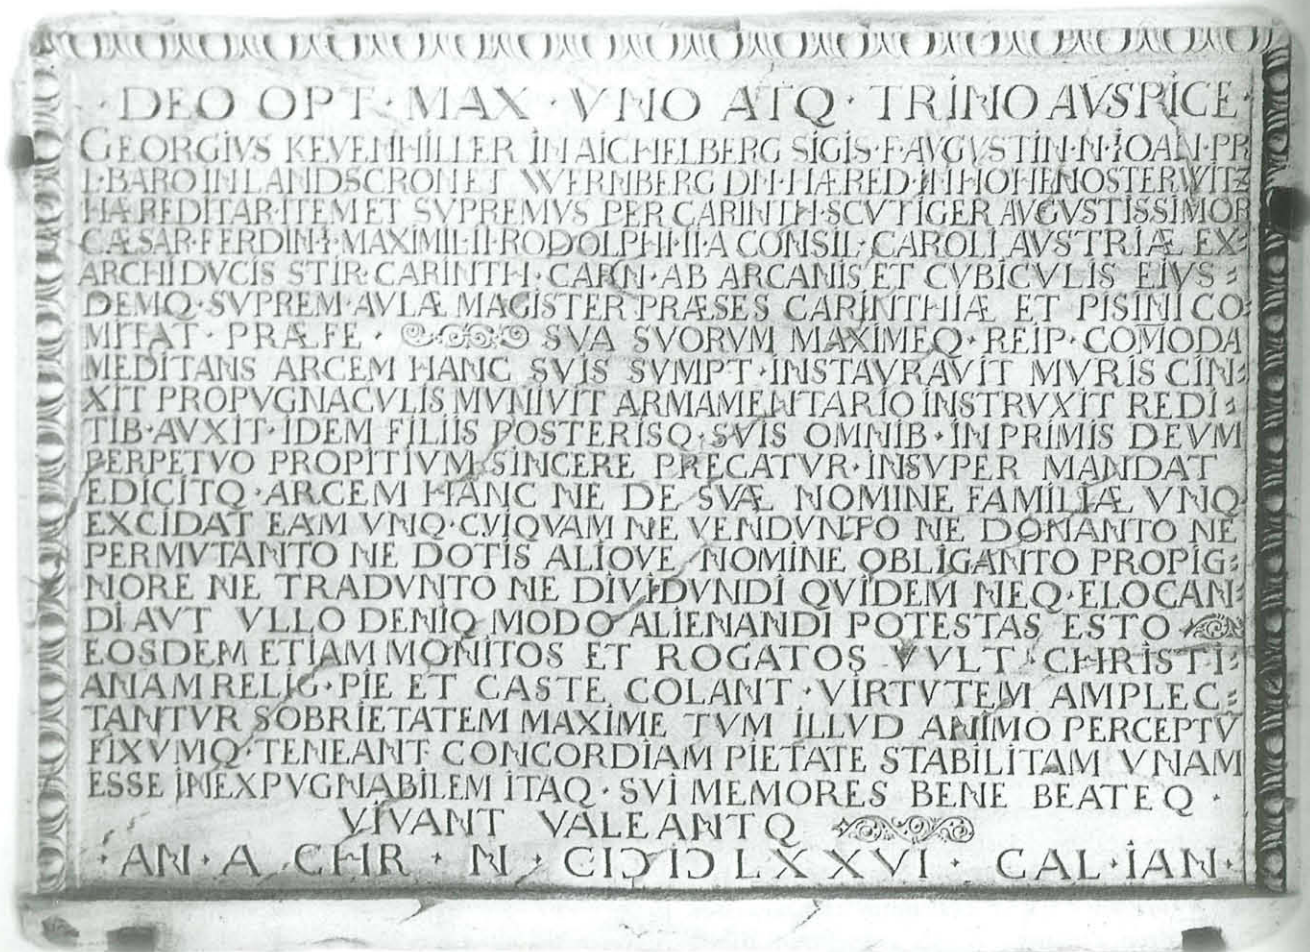 · DEO OPT · MAX · VNO ATQ · TRINO AVSPICE ·
GEORGIVS KEVENHILLER IN AICHELBERG SIGIS · F · AVGVSTIN · N · IOAN · PR
L · BARO IN LANDSCRON ET WERNBERG DN · HÆRED · IN HOHENOSTERWITZ
HÆREDITAR · ITEM ET SVPREMVS PER CARINTH · SCVTIGER AVGVSTISSIMOR
CÆSAR · FERDIN · I · MAXIMIL · II · RODOLPHI · II · A CONSIL · CAROLI AVSTRIÆ EX:
ARCHIDVCIS STIR · CARINTH · CARN · AB ARCANIS ET CVBICVLIS EIVS :
DEMQ · SVPREM · AVLÆ MAGISTER PRÆSES CARINTHIÆ ET PISINI CO:
MITAT · PRÆFE · SVA SVORVM MAXIMEQ · REIP · COMODA
MEDITANS ARCEM HANC SVIS SVMPT · INSTAVRAVIT MVRIS CIN:
XIT PROPVGNACVLIS MVNIVIT ARMAMENTARIO INSTRVXIT REDI :
TIB · AVXIT · IDEM FILIIS POSTERISQ · SVIS OMNIB · IN PRIMIS DEVM
PERPETVO PROPITIVM SINCERE PRECATVR · INSVPER MANDAT
EDICITQ · ARCEM HANC NE DE SVÆ NOMINE FAMILIÆ VNQ
EXCIDAT EAM VNQ · CVIQVAM NE VENDVNTO NE DONANTO NE
PERMVTANTO NE DOTIS ALIOVE NOMINE OBLIGANTO PROPIG:
NORE NE TRADVNTO NE DIVIDVNDI QVIDEM NEQ · ELOCAN:
DI AVT VLLO DENIQ MODO ALIENANDI POTESTAS ESTO
EOSDEM ETIAM MONITOS ET ROGATOS VVLT · CHRISTI:
ANAM RELIG · PIE ET CASTE COLANT · VIRTVTEM AMPLEC:
TANTVR SOBRIETATEM MAXIME TVM ILLVD ANIMO PERCEPTV̄
FIXVMQ · TENEANT CONCORDIAM PIETATE STABILITAM VNAM
ESSE INEXPVGNABILEM ITAQ · SVI MEMORES BENE BEATEQ ·
VIVANT VALEANTQ
· AN · A CHR · N · CIƆIƆLXXVI · CAL · IAN ·